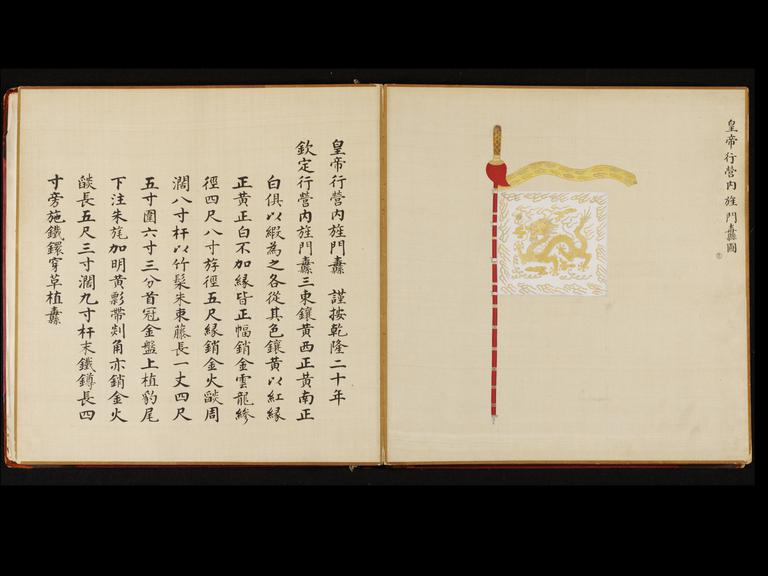 皇帝行營內旌門纛圖
皇帝行營內旌門纛 謹按乾隆二十年
欽定行營內旌門纛三東鑲黃西正黃南正
白俱以緞為之各從其色鑲黃以紅緣
正黃正白不加緣皆正幅銷金雲龍縿
徑四尺八寸斿徑五尺緣銷金火燄周
濶八寸杆以竹髹朱束藤長一丈四尺
五寸圍六寸三分首冠金盤上植豹尾
下注朱旄加明黃彯帶剡角亦銷金火
燄長五尺三寸濶九寸杆末鐵鐏長四
寸旁施鐵鐶穿草植纛